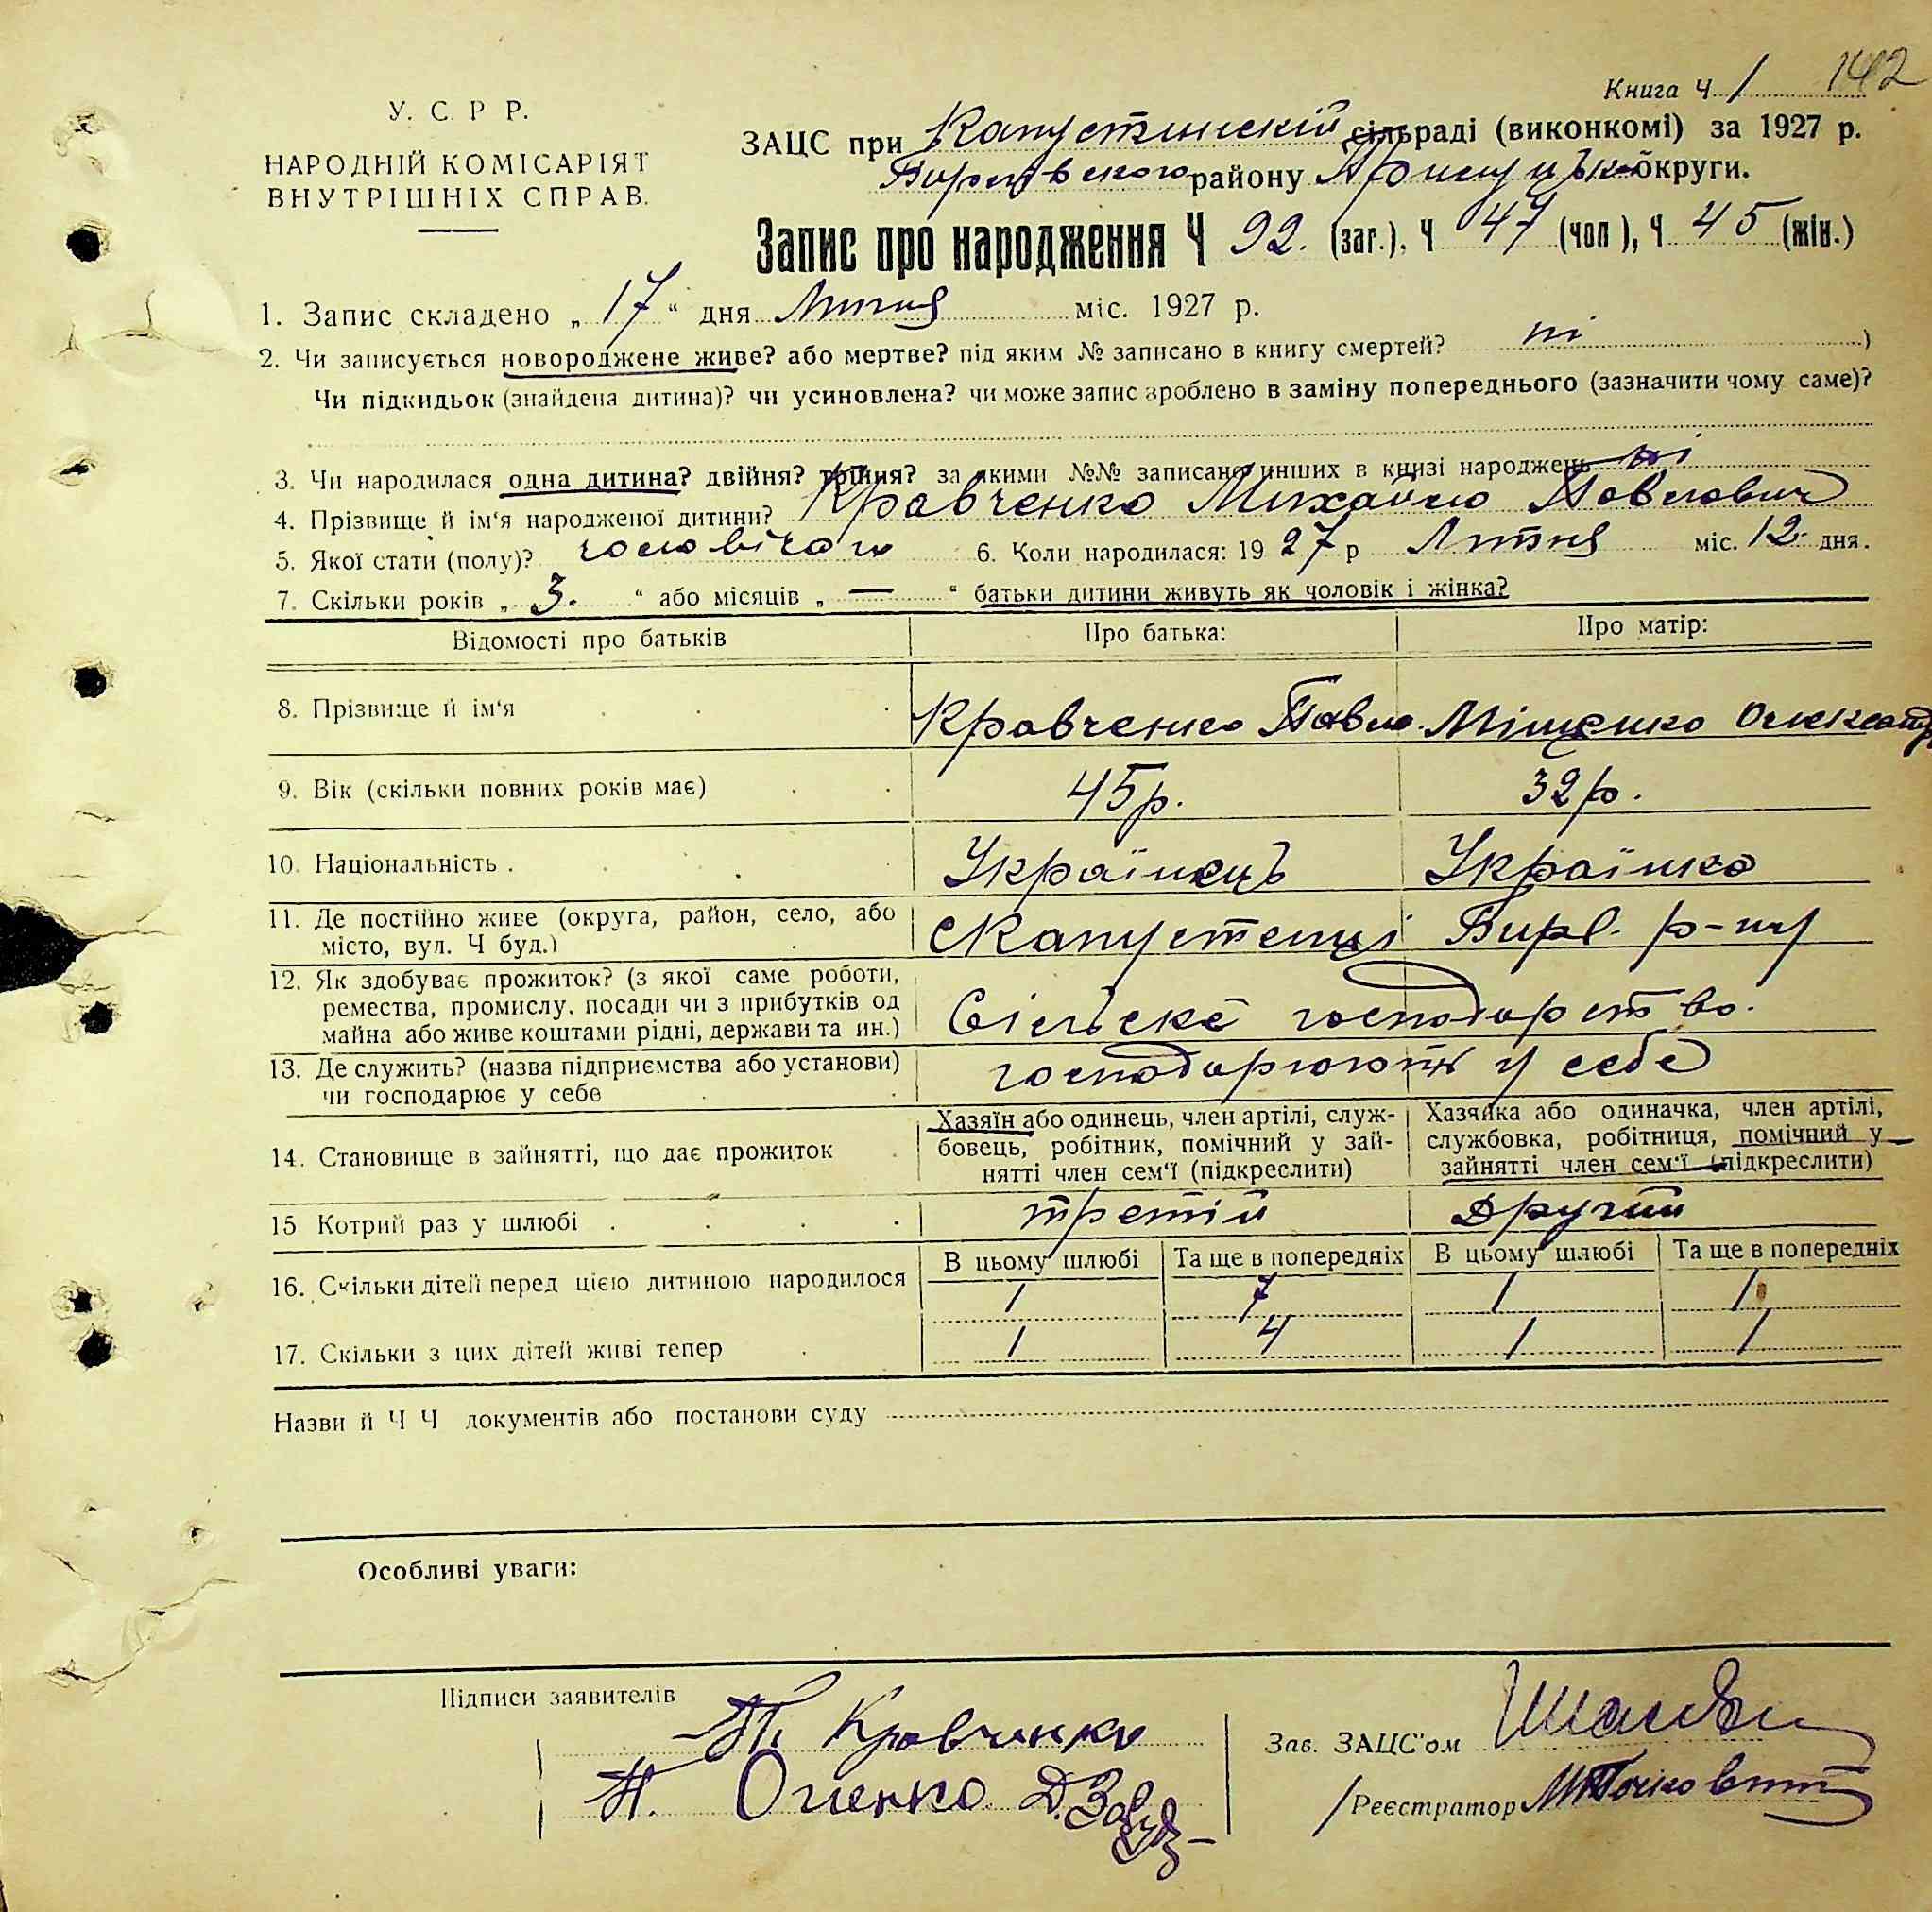 Книга Ч 1 142
У. С. Р Р.
НАРОДНІЙ КОМІСАРІЯТ
ВНУТРІШНІХ СПРАВ.
ЗАЦС при Капустинскій сільраді (виконкомі) за 1927 р.
району округи.
Запис про народження Ч 92. (заг.), Ч 47 (чол), Ч 45 (жін.)
1. Запис складено „ 17 “ дня Липня міс. 1927 р.
2. Чи записується новороджене живе? або мертве? під яким № записано в книгу смертей? ні )
Чи підкидьок (знайдена дитина)? чи усиновлена? чи може запис зроблено в заміну попереднього (зазначити чому саме)?
3. Чи народилася одна дитина? двійня? тройня? за якими №№ записано инших в книзі народжень ні
4. Прізвище й ім‘я народженої дитини? Кравченко Михайло Павлович
5. Якої стати (полу)? чоловічого 6. Коли народилася: 19 27 р Липня міс. 12. дня.
7. Скільки років „ 3. “ або місяців „ — “ батьки дитини живуть як чоловік і жінка?
Відомості про батьків Про батька: Про матір:
8. Прізвище й ім‘я Кравченко Павло. Міщенко Олександр
9. Вік (скільки повних років має) 45р. 32р.
10. Національність . Українець Українка
11. Де постійно живе (округа, район, село, або
місто, вул. Ч буд.) Бирл. р-ну
12. Як здобуває прожиток? (з якої саме роботи,
ремества, промислу, посади чи з прибутків од
майна або живе коштами рідні, держави та ин.) Сільське господарство.
13. Де служить? (назва підприємства або установи)
чи господарює у себе господарюють у себе
14. Становище в зайнятті, що дає прожиток
Хазяїн або одинець, член артілі, служ-
бовець, робітник, помічний у зай-
нятті член сем‘ї (підкреслити)
Хазяйка або одиначка, член артілі,
службовка, робітниця, помічний у
зайнятті член сем‘ї (підкреслити)
15 Котрий раз у шлюбі третій другий
В цьому шлюбі Та ще в попередніх В цьому шлюбі Та ще в попередніх
16. Скільки дітей перед цією дитиною народилося 1 7 1 1
17. Скільки з цих дітей живі тепер 1 4 1 1
Назви й Ч Ч документів або постанови суду
Особливі уваги:
Підписи заявителів
П. Кравченко
Зав. ЗАЦС'ом
Реєстратор